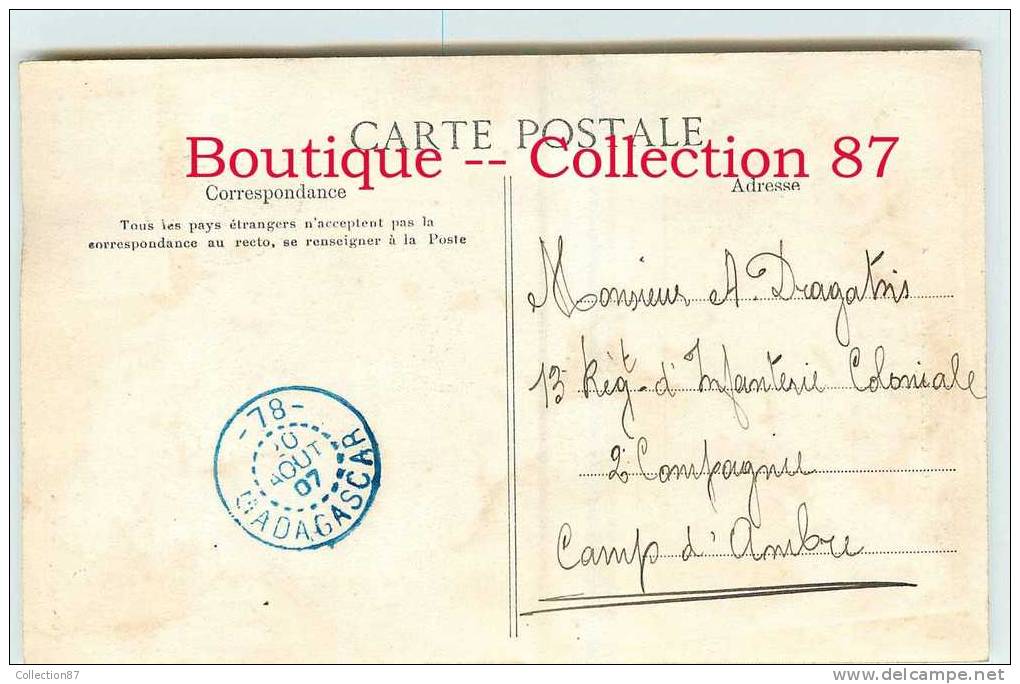 CARTE POSTALE
Boutique -- Collection 87
Correspondance
Tous les pays étrangers n'acceptent pas la
correspondance au recto, se renseigner à la Poste
Adresse
Monsieur A. Dragatris
13 Règt d'Infanterie Coloniale
2e Compagnie
Camp d'Ambre
-78-
AOUT
07
MADAGASCAR
Collection87
www.delcampe.net